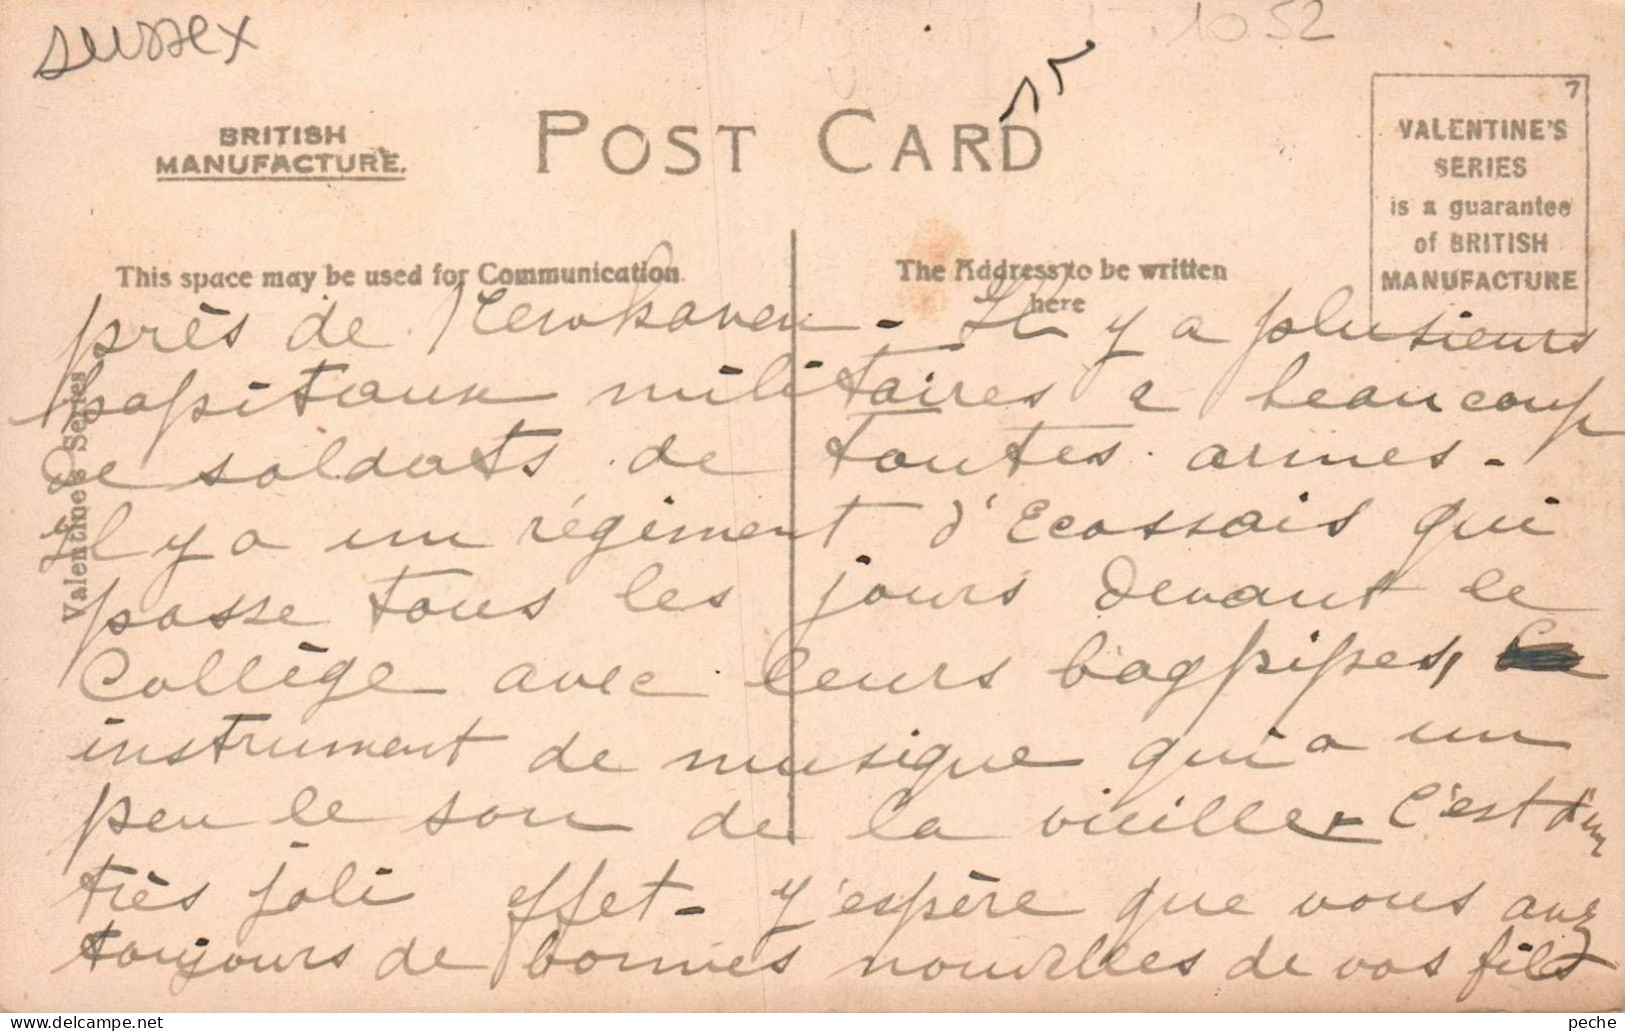 sussex
10.52
BRITISH
MANUFACTURE.
POST CARD
7
VALENTINE'S
SERIES
is a guarantee
of BRITISH
MANUFACTURE
This space may be used for Communication
The Address to be written
here
Valentine's Series
près de Newhaven - Il y a plusieurs
hopitaux militaires & beaucoup
de soldats de toutes armes -
Il y a un régiment d'Ecossais qui
passe tous les jours devant le
Collège avec leurs bagpipes,
instrument de musique qui a un
peu le son de la vielle - C'est d'un
très joli effet - J'espère que vous avez
toujours de bonnes nouvelles de vos fils
peche